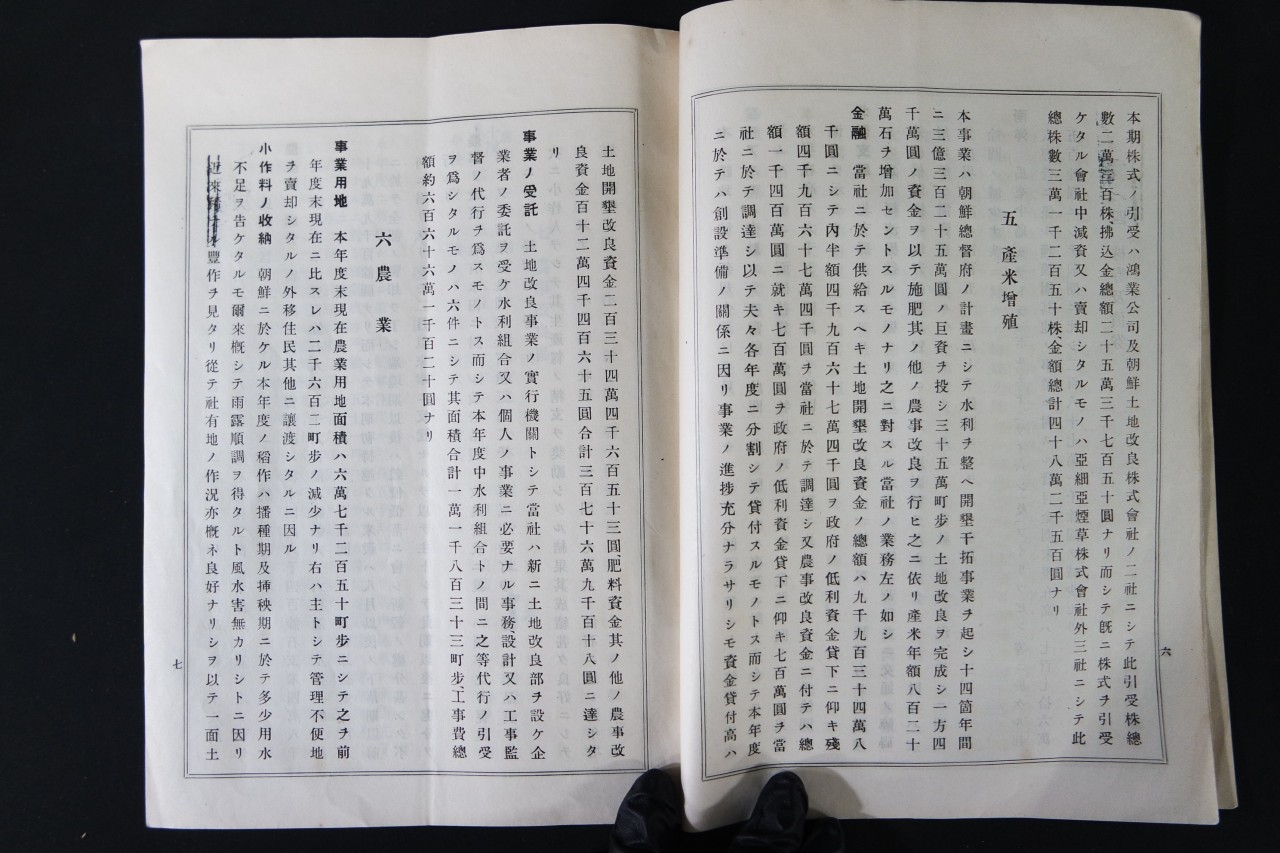 本期株式ノ引受ハ鴻業公司及朝鮮土地改良株式會社ノ二社ニシテ此引受株總
數二萬三百株、拂込金總額二十五萬三千七百五十圓ナリ而シテ旣ニ株式ヲ引受
ケタル會社中減資又ハ賣却シタルモノハ亞細亞煙草株式會社外三社ニシテ此
總株數三萬一千二百五十株、金額總計四十八萬二千五百圓ナリ
五 產米增殖
本事業ハ朝鮮總督府ノ計畫ニシテ水利ヲ整ヘ開墾干拓事業ヲ起シ十四箇年間
ニ三億三百二十五萬圓ノ巨資ヲ投シ三十五萬町步ノ土地改良ヲ完成シ一方四
千萬圓ノ資金ヲ以テ施肥其ノ他ノ農事改良ヲ行ヒ之ニ依リ產米年額八百二十
萬石ヲ增加セントスルモノナリ之ニ對スル當社ノ業務左ノ如シ
金融 當社ニ於テ供給スヘキ土地開墾改良資金ノ總額ハ九千九百三十四萬八
千圓ニシテ內半額四千九百六十七萬四千圓ヲ政府ノ低利資金貸下ニ仰キ殘
額四千九百六十七萬四千圓ヲ當社ニ於テ調達シ又農事改良資金ニ付テハ總
額一千四百萬圓ニ就キ七百萬圓ヲ政府ノ低利資金貸下ニ仰キ七百萬圓ヲ當
社ニ於テ調達シ以テ夫々各年度ニ分割シテ貸付スルモノトス而シテ本年度
ニ於テハ創設準備ノ關係ニ因リ事業ノ進捗充分ナラサリシモ資金貸付高ハ
六
土地開墾改良資金二百三十四萬四千六百五十三圓、肥料資金其ノ他ノ農事改
良資金百十二萬四千四百六十五圓合計三百七十六萬九千百十八圓ニ達シタ
リ
事業ノ受託 土地改良事業ノ實行機關トシテ當社ハ新ニ土地改良部ヲ設ケ企
業者ノ委託ヲ受ケ水利組合又ハ個人ノ事業ニ必要ナル事務設計又ハ工事監
督ノ代行ヲ爲スモノトス而シテ本年度中水利組合トノ間ニ之等代行ノ引受
ヲ爲シタルモノハ六件ニシテ其面積合計一萬一千八百三十三町步、工事費總
額約六百六十六萬一千百二十圓ナリ
六 農 業
事業用地 本年度末現在農業用地面積ハ六萬七千二百五十町步ニシテ之ヲ前
年度末現在ニ比スレハ二千六百二町步ノ減少ナリ右ハ主トシテ管理不便地
ヲ賣却シタルノ外移住民其他ニ讓渡シタルニ因ル
小作料ノ收納 朝鮮ニ於ケル本年度ノ稻作ハ播種期及揷秧期ニ於テ多少用水
不足ヲ告ケタルモ爾來槪シテ雨露順調ヲ得タルト風水害無カリシトニ因リ
近來稀ナル豐作ヲ見タリ從テ社有地ノ作況亦槪ネ良好ナリシヲ以テ一面土
七